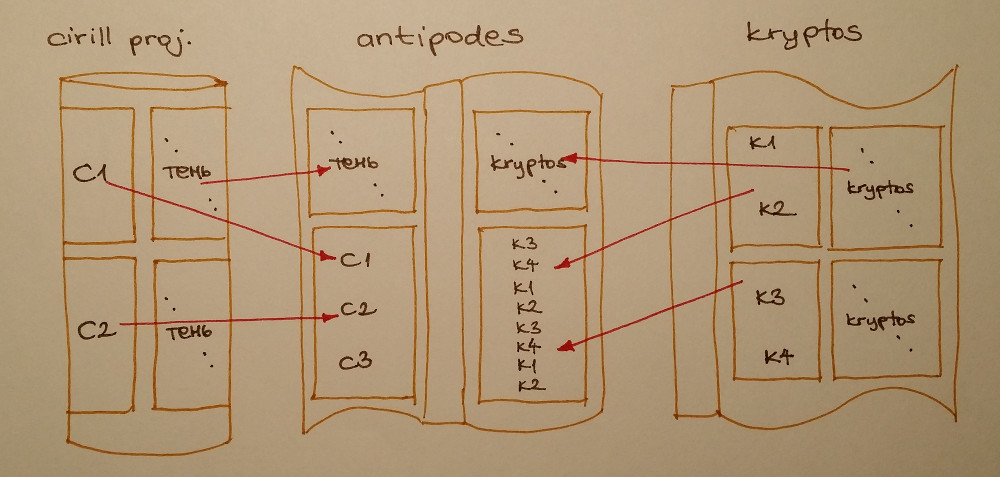 cirill proj.
C1
тень
C2
тень
antipodes
тень
kryptos
C1
C2
C3
K3
K4
K1
K2
K3
K4
K1
K2
kryptos
K1
K2
kryptos
K3
K4
kryptos